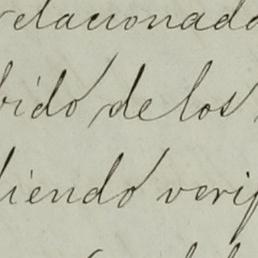 relacionado
bido de los
diendo verif